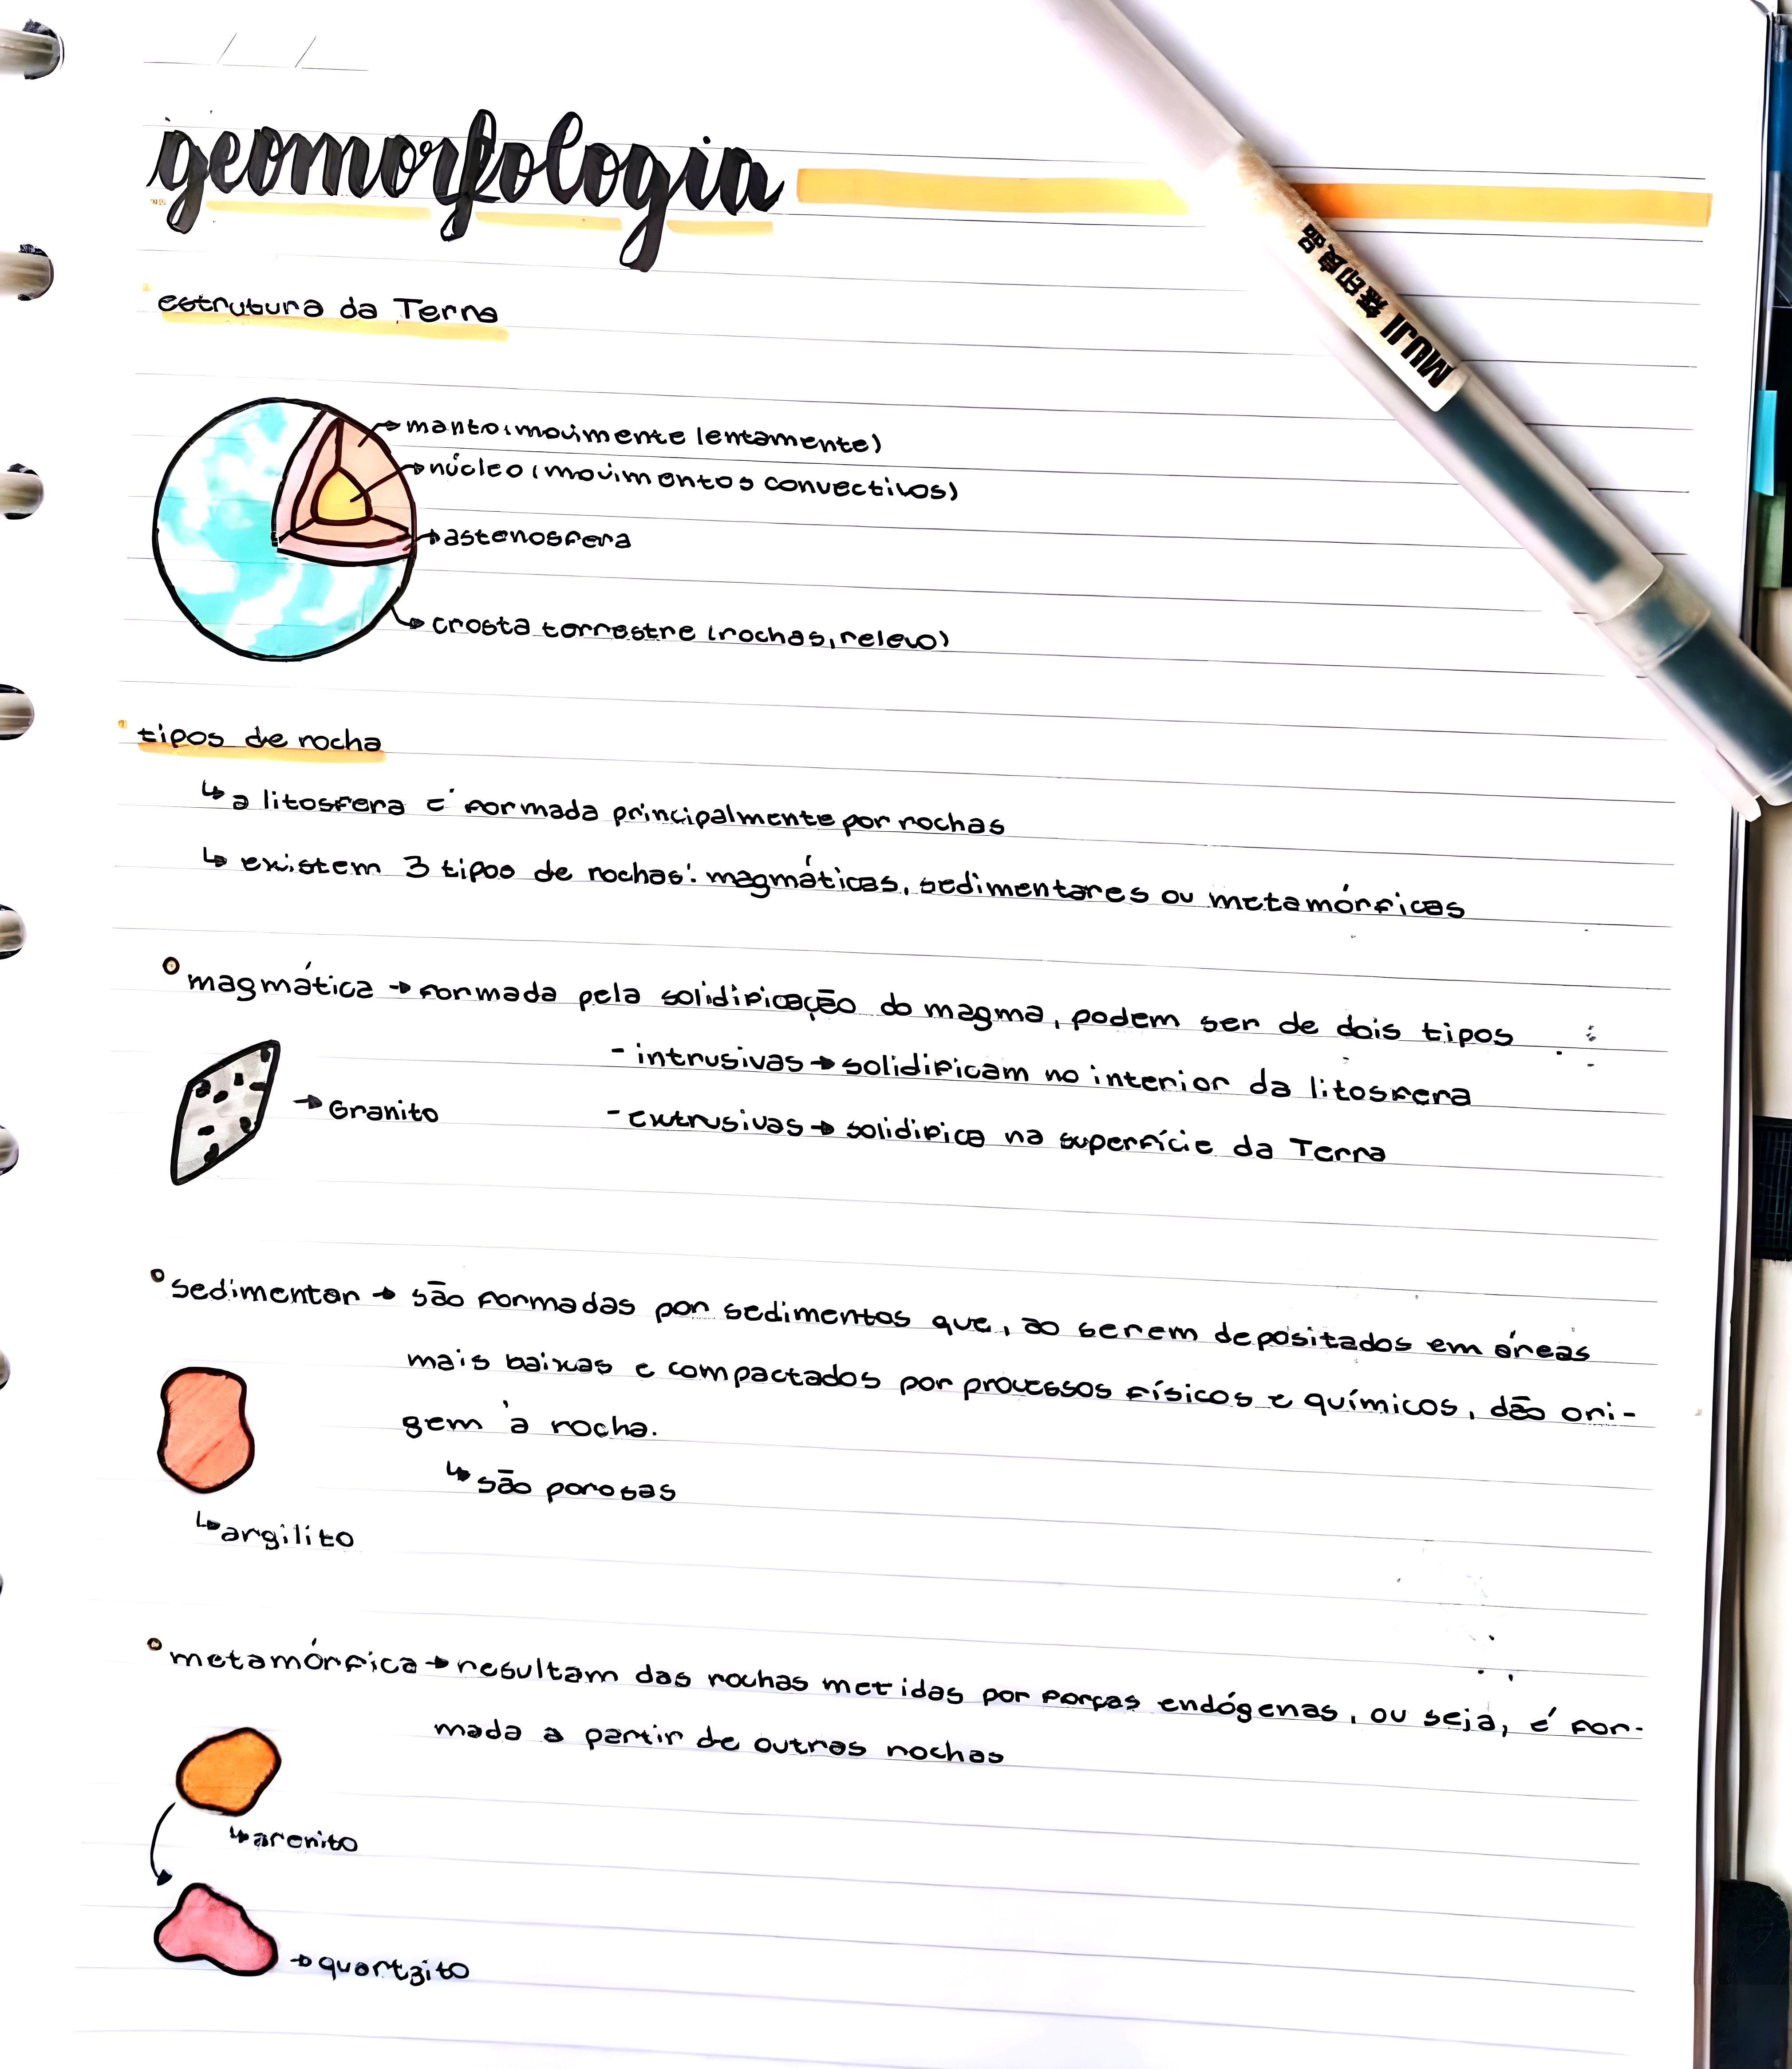 geomorfologia
MUJI 無印良品
estrutura da Terra
manto (movimente lentamente)
núcleo (movimentos convectivos)
astenosfera
crosta terrestre (rochas, relevo)
tipos de rocha
↳ a litosfera é formada principalmente por rochas
↳ existem 3 tipos de rochas: magmáticas, sedimentares ou metamórficas
magmática → formada pela solidificação do magma, podem ser de dois tipos :
- intrusivas → solidificam no interior da litosfera
→ Granito
- extrusivas → solidifica na superfície da Terra
sedimentar → são formadas por sedimentos que, ao serem depositados em áreas
mais baixas e compactados por processos físicos e químicos, dão ori-
gem à rocha.
↳ são porosas
↳ argilito
metamórfica → resultam das rochas metidas por forças endógenas, ou seja, é for-
mada a partir de outras rochas
↳ arenito
→ quartzito